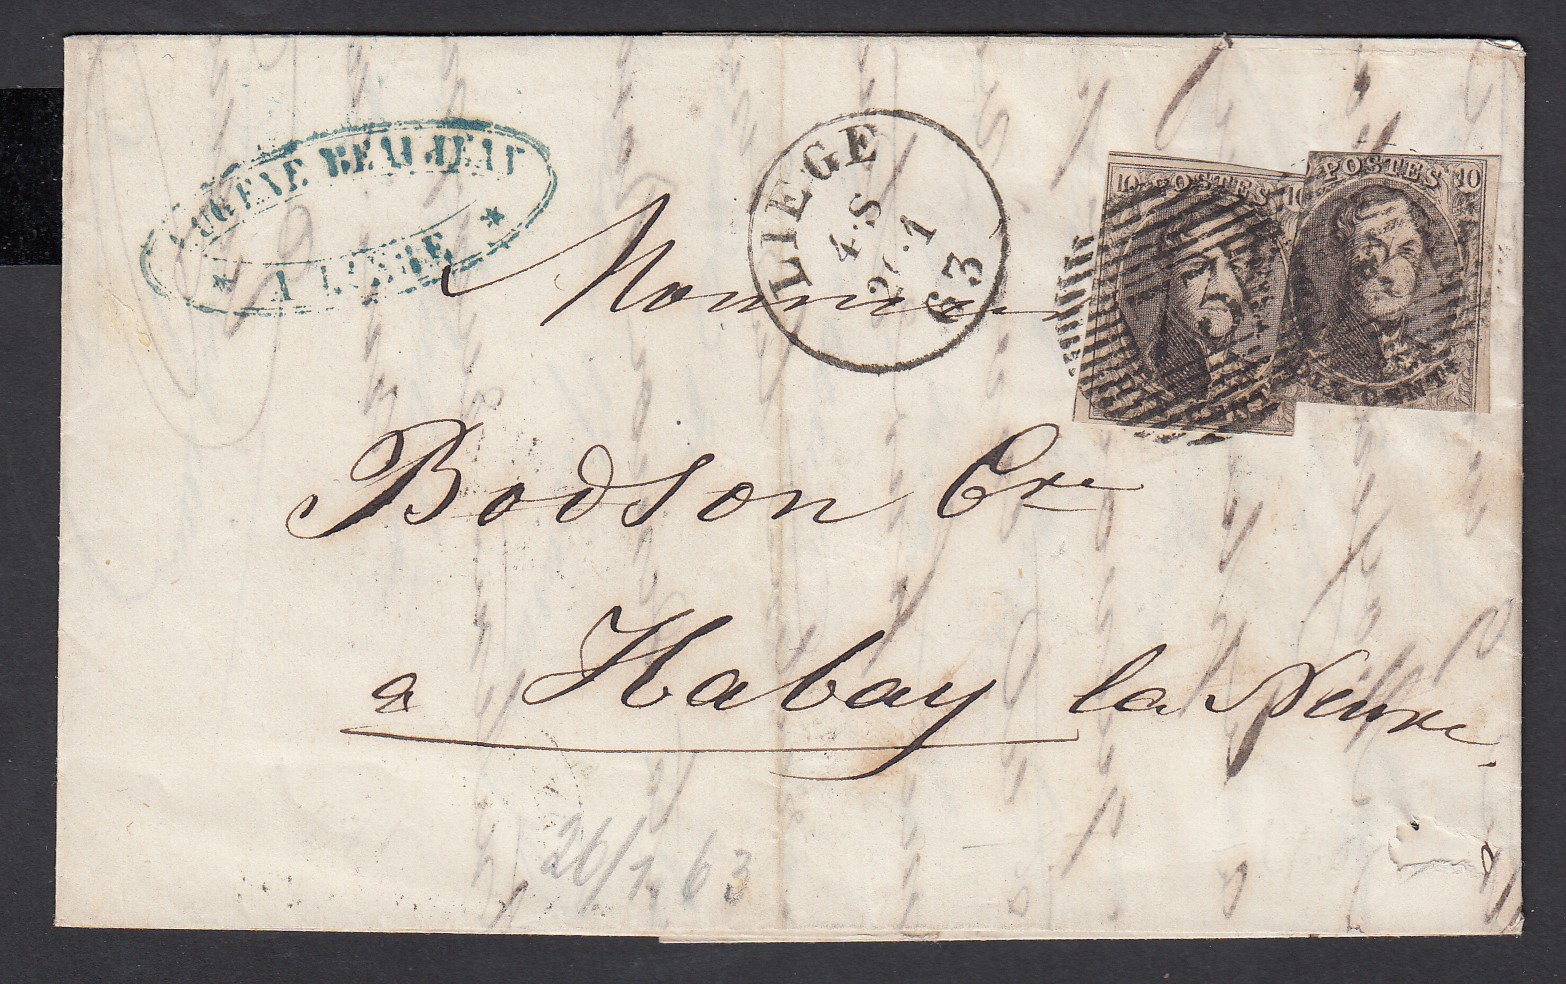 EUGENE BEAUJEAN
A LIEGE
LIEGE
4·S
1
63
10 POSTES 10
POSTES 10
Monsieur
Bodson Cre
a Habay la Neuve
26/1. 63